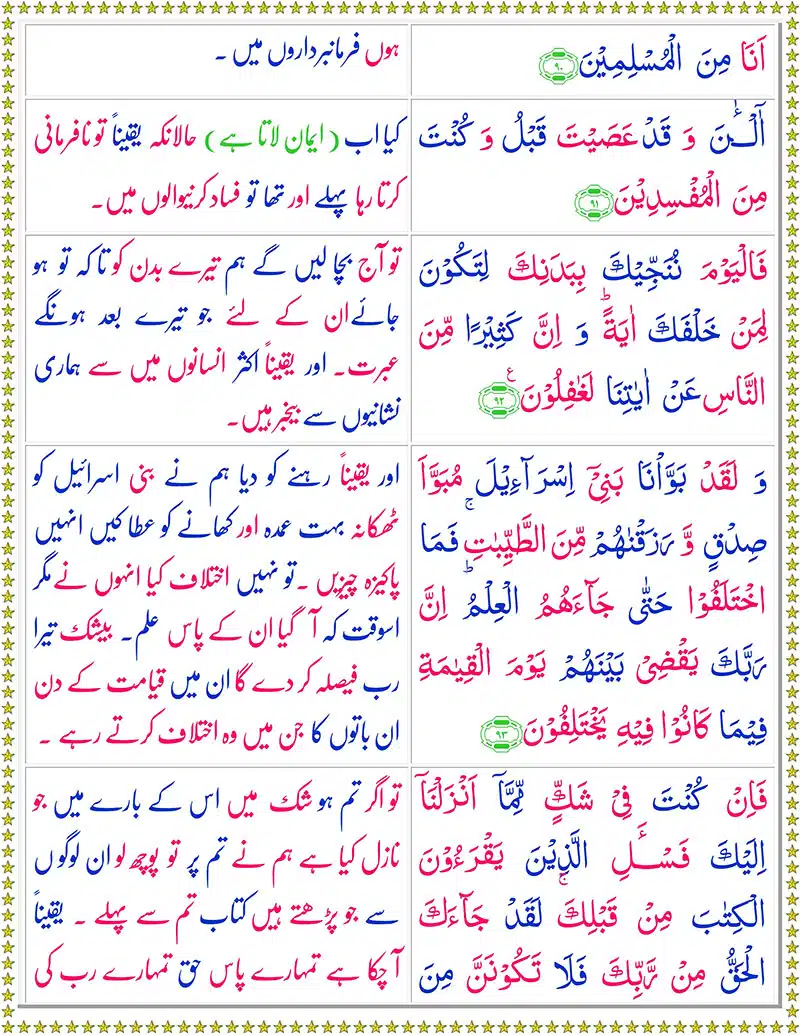 اَنَا مِنَ الْمُسْلِمِيْنَ ﴿۹۰﴾
ہوں فرمانبرداروں میں ۔
آٰلْـٰٔنَ وَ قَدْ عَصَيْتَ قَبْلُ وَ كُنْتَ
مِنَ الْمُفْسِدِيْنَ ﴿۹۱﴾
کیا اب (ایمان لاتا ہے) حالانکہ یقیناً تو نافرمانی
کرتا رہا پہلے اور تھا تو فساد کرنیوالوں میں۔
فَالْيَوْمَ نُنَجِّيْكَ بِبَدَنِكَ لِتَكُوْنَ
لِمَنْ خَلْفَكَ اٰيَةً ؕ وَ اِنَّ كَثِيْرًا مِّنَ
النَّاسِ عَنْ اٰيٰتِنَا لَغٰفِلُوْنَ ﴿۹۲﴾ ع
تو آج بچا لیں گے ہم تیرے بدن کو تاکہ تو ہو
جائے ان کے لئے جو تیرے بعد ہونگے
عبرت۔ اور یقیناً اکثر انسانوں میں سے ہماری
نشانیوں سے بیخبر ہیں۔
وَ لَقَدْ بَوَّاْنَا بَنِيْۤ اِسْرَآءِيْلَ مُبَوَّاَ
صِدْقٍ وَّ رَزَقْنٰهُمْ مِّنَ الطَّيِّبٰتِ ۚ فَمَا
اخْتَلَفُوْا حَتّٰى جَآءَهُمُ الْعِلْمُ ؕ اِنَّ
رَبَّكَ يَقْضِيْ بَيْنَهُمْ يَوْمَ الْقِيٰمَةِ
فِيْمَا كَانُوْا فِيْهِ يَخْتَلِفُوْنَ ﴿۹۳﴾
اور یقیناً رہنے کو دیا ہم نے بنی اسرائیل کو
ٹھکانہ بہت عمدہ اور کھانے کو عطا کیں انہیں
پاکیزہ چیزیں ۔ تو نہیں اختلاف کیا انہوں نے مگر
اسوقت کہ آ گیا ان کے پاس علم۔ بیشک تیرا
رب فیصلہ کر دے گا ان میں قیامت کے دن
ان باتوں کا جن میں وہ اختلاف کرتے رہے ۔
فَاِنْ كُنْتَ فِيْ شَكٍّ مِّمَّاۤ اَنْزَلْنَاۤ
اِلَيْكَ فَسْـَٔلِ الَّذِيْنَ يَقْرَءُوْنَ
الْكِتٰبَ مِنْ قَبْلِكَ ۚ لَقَدْ جَآءَكَ
الْحَقُّ مِنْ رَّبِّكَ فَلَا تَكُوْنَنَّ مِنَ
تو اگر تم ہو شک میں اس کے بارے میں جو
نازل کیا ہے ہم نے تم پر تو پوچھ لو ان لوگوں
سے جو پڑھتے ہیں کتاب تم سے پہلے ۔ یقیناً
آ چکا ہے تمہارے پاس حق تمہارے رب کی